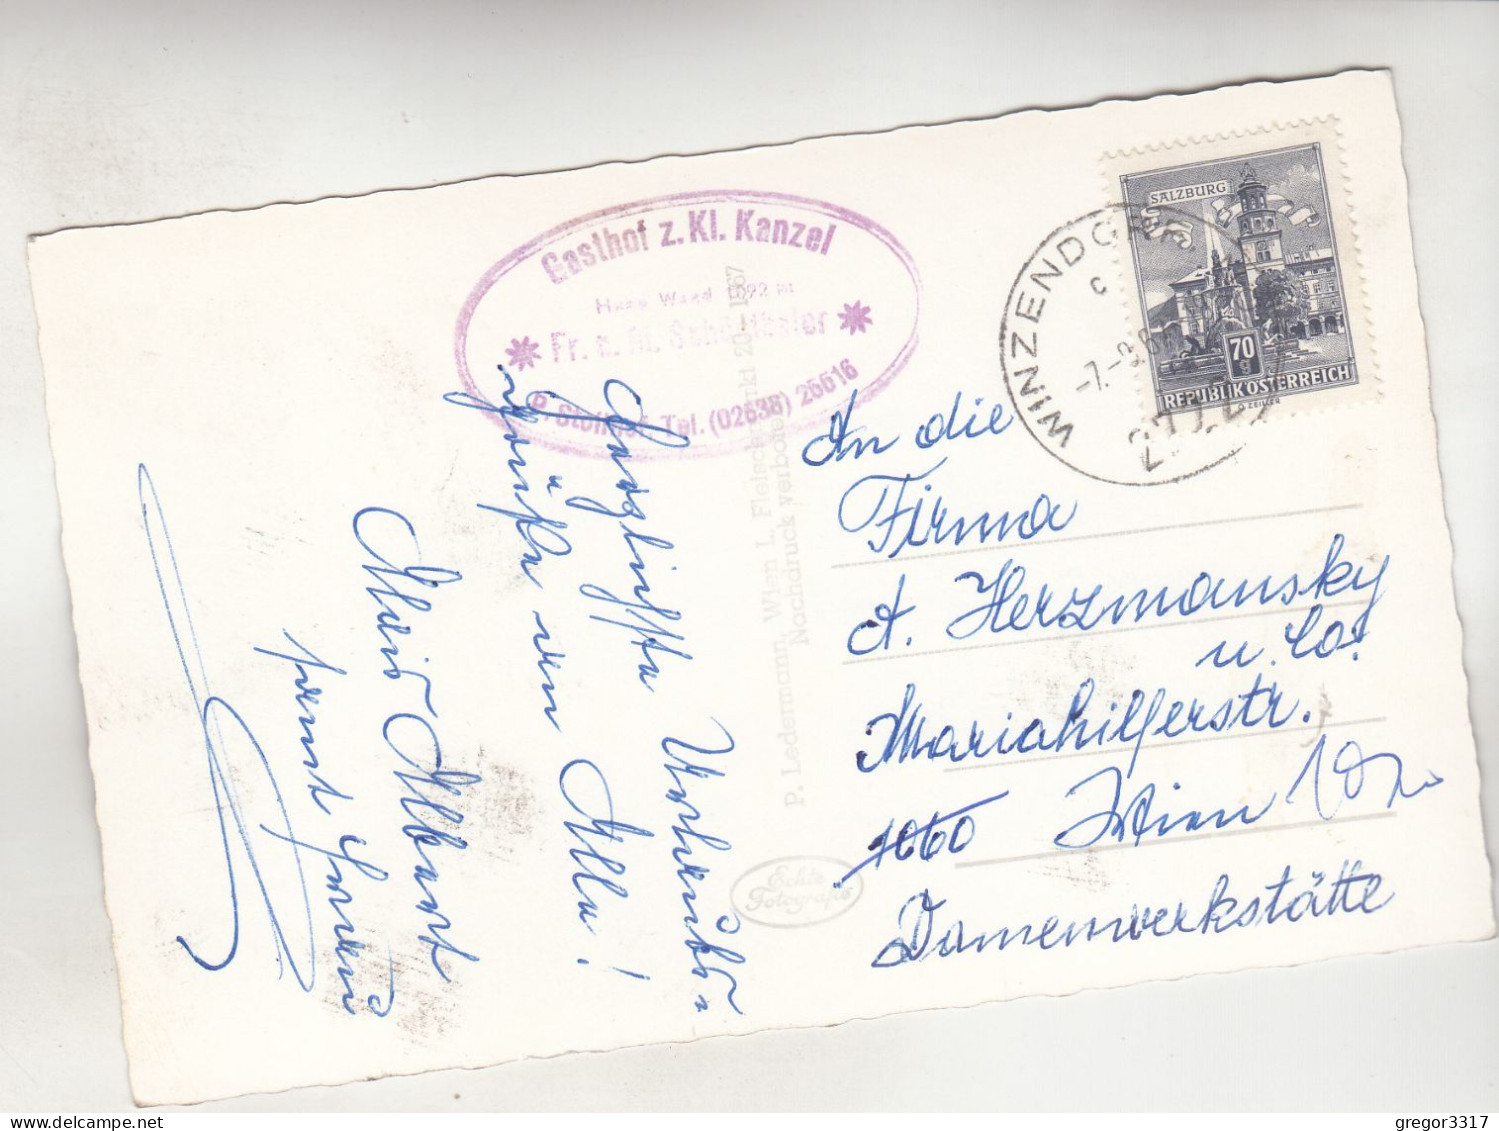 Gasthof z. Kl. Kanzel
Hohe Wand 1092 m
Fr. u. M.
P. Stollhof, Tel. (02638) 25516
SALZBURG
70
g
REPUBLIK ÖSTERREICH
WINZENDORF
c
Herzlichste Urlaubs-
grüße an Alle!
Albert
samt
An die
Firma
A. Herzmansky
u. Co.
Mariahilferstr.
1060 Wien
Damenwerkstätte
P. Ledermann, Wien I., Fleischmarkt 20 1567
Nachdruck verboten
Echte
Fotografie
gregor3317
delcampe.net